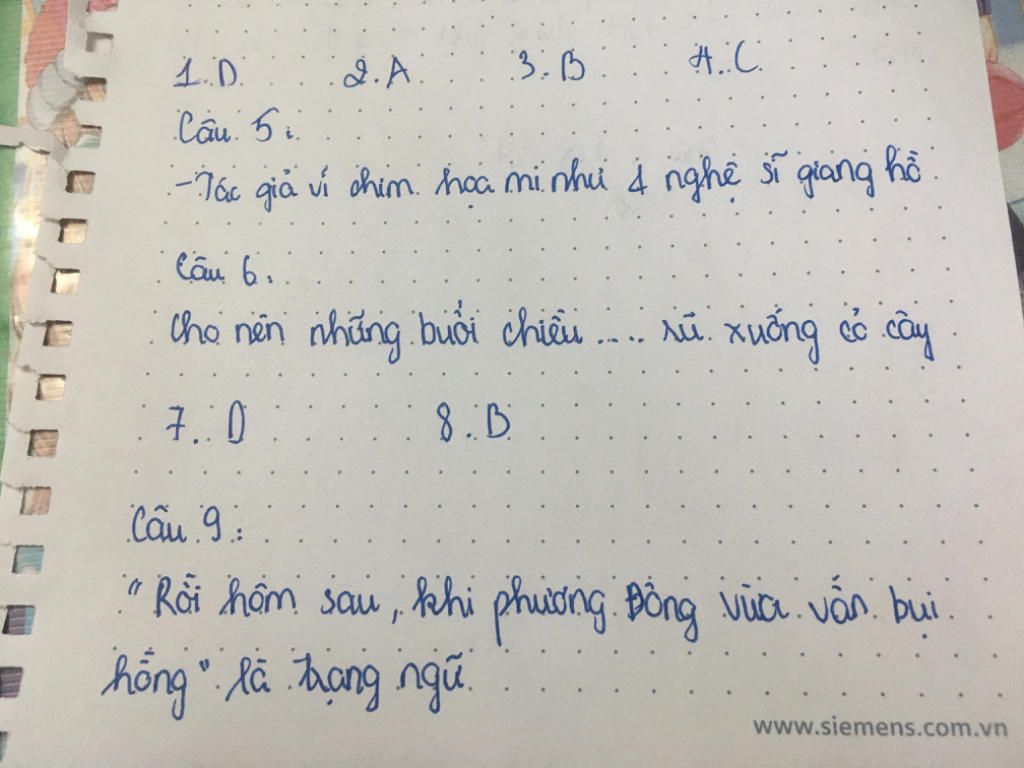 1.D 2.A 3.B 4.C
Câu 5:
-Tác giả ví chim họa mi như 1 nghệ sĩ giang hồ
Câu 6.
Cho nên những buổi chiều .... rũ xuống cỏ cây
7. D 8. B
Câu 9:
"Rồi hôm sau, khi phương Đông vừa vẩn bụi
hồng" là trạng ngữ
www.siemens.com.vn